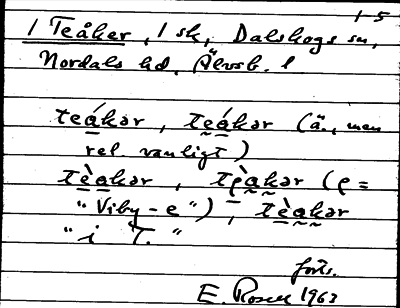 1-5
1 Teåker, 1 sk, Dalskogs sn,
Nordals hd, Älvsb. l
teákər, teákər (ä., men
rel. vanligt)
tèakər, tèakər (e =
"Viby-e"), tèakər
"i T."
forts.
E. Rosell 1963